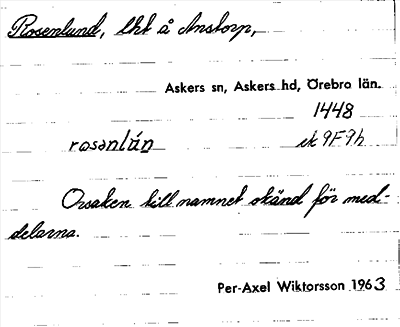 Rosenlund, lht å Anstorp,
Askers sn, Askers hd, Örebro län.
1448
rosənlún̥ ek 9F9h
Orsaken till namnet okänd för med-
delarna.
Per-Axel Wiktorsson 1963